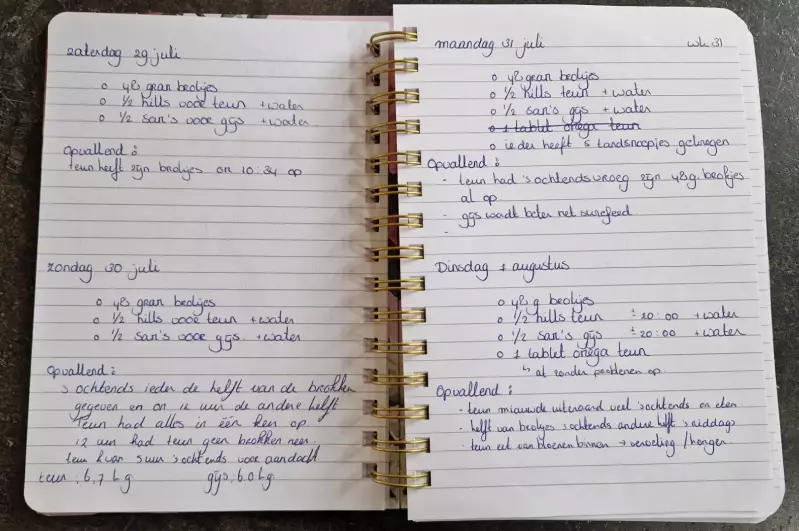 zaterdag 29 juli
o 48 gram brokjes
o 1/2 hills voor teun + water
o 1/2 san's voor gijs + water
Opvallend :
teun heeft zijn brokjes om 10:34 op
zondag 30 juli
o 48 gram brokjes
o 1/2 hills voor teun + water
o 1/2 san's voor gijs + water
Opvallend :
's ochtends ieder de helft van de brokken
gegeven en om 12 uur de andere helft
Teun had alles in één keer op.
12 uur had teun geen brokken meer.
teun kwam 5 uur 's ochtends voor aandacht
teun : 6,7 kg gijs : 6.0 kg
maandag 31 juli wk 31
o 48 gram brokjes
o 1/2 hills teun + water
o 1/2 san's gijs + water
o 1 tablet omega teun
o ieder heeft 5 tandsnoepjes gekregen
Opvallend :
- teun had 's ochtends vroeg zijn 48 g. brokjes
al op
- gijs wordt beter met surefeed
-
Dinsdag 1 augustus
o 48 g brokjes
o 1/2 hills teun ± 20:00 + water
o 1/2 san's gijs ± 20:00 + water
o 1 tablet omega teun
↳ at zonder problemen op
Opvallend :
- teun miauwde uiteraard veel 's ochtends om eten
- helft van brokjes 's ochtends andere helft 's middags
- teun eet van bloemen binnen → verveling / honger